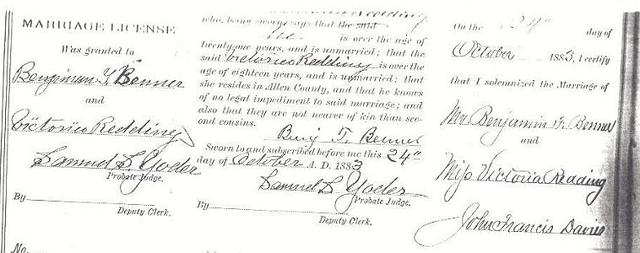 MARRIAGE LICENSE
Was granted to
Benjiman F. Benner
and
Victoria Redding
Samuel S. Yoder
Probate Judge.
By
Deputy Clerk.
No.
Redding
who, being sworn, says that the said
He is over the age of
twenty-one years, and is unmarried; that the
said Victoria Redding is over the
age of eighteen years, and is unmarried; that
she resides in Allen County, and that he knows
of no legal impediment to said marriage; and
also that they are not nearer of kin than sec-
ond cousins.
Benj F. Benner
Sworn to and subscribed before me this 24"
day of October A. D. 1883
Samuel S. Yoder
Probate Judge.
By
Deputy Clerk.
On the 24" day of
October 1883, I certify
that I solemnized the Marriage of
Mr. Benjamin F. Benner
and
Miss Victoria Redding
John Francis Davies